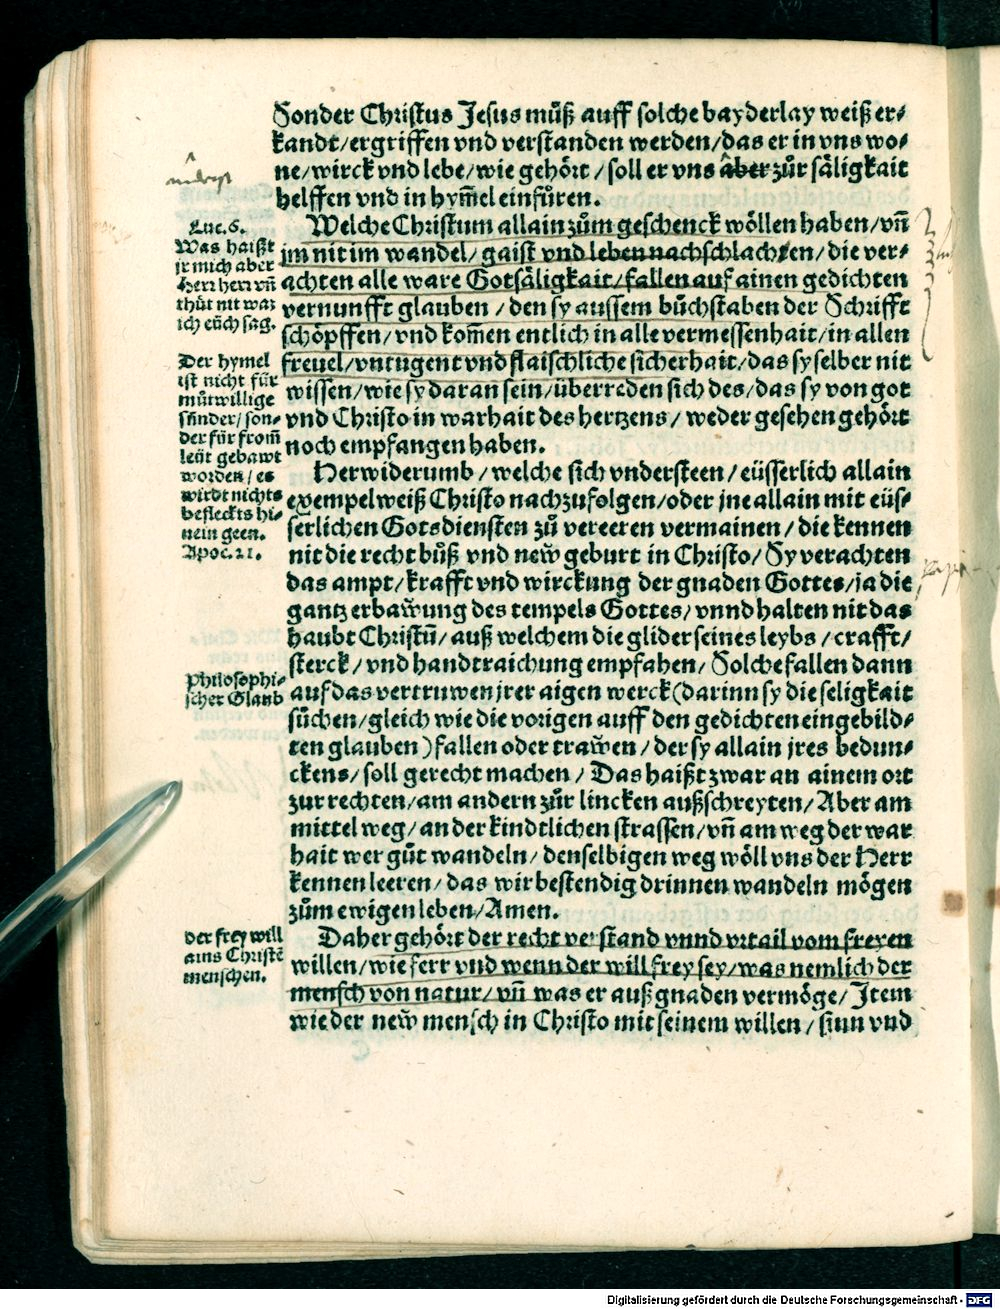 Sonder Christus Jesus můß auff solche bayderlay weiß er-
kandt / ergriffen vnd verstanden werden / das er in vns wo-
ne / wirck vnd lebe / wie gehört / soll er vns aber zůr säligkait
helffen vnd in hym̄el einfůren.
Luc. 6.
Was haißt
jr mich aber
Herr herr vn̄
thůt nit was
ich eüch sag.
Welche Christum allain zům geschenck wöllen haben / vn̄
jm nit im wandel / gaist vnd leben nachschlachten / die ver-
achten alle ware Gotsäligkait / fallen auf ainen gedichten
vernunfft glauben / den sy aussem bůchstaben der Schrifft
schöpffen / vnd kom̄en entlich in alle vermessenhait / in allen
freuel / vntugent vnd flaischliche sicherhait / das sy selber nit
wissen / wie sy daran sein / überreden sich des / das sy von got
vnd Christo in warhait des hertzens / weder gesehen gehört
noch empfangen haben.
Der hymel
ist nicht für
můtwillige
sünder / son-
der für from̄
leüt gebawt
worden / es
wirdt nichts
befleckts hi-
nein geen.
Apoc. 21.
Herwiderumb / welche sich vndersteen / eüsserlich allain
exempelweiß Christo nachzufolgen / oder jne allain mit eüs-
serlichen Gotsdiensten zů vereeren vermainen / die kennen
nit die recht bůß vnd new̆ geburt in Christo / Sy verachten
das ampt / krafft vnd wirckung der gnaden Gottes / ja die
gantz erbaw̆ung des tempels Gottes / vnnd halten nit das
haubt Christū / auß welchem die glider seines leybs / crafft /
sterck / vnd handtraichung empfahen / Solche fallen dann
auf das vertruwen jrer aigen werck (darinn sy die seligkait
sůchen / gleich wie die vorigen auff den gedichten eingebild-
ten glauben) fallen oder traw̆en / der sy allain jres bedun-
ckens / soll gerecht machen / Das haißt zwar an ainem ort
zur rechten / am andern zůr lincken außschreyten / Aber am
mittel weg / an der kindtlichen strassen / vn̄ am weg der war
hait wer gůt wandeln / denselbigen weg wöll vns der Herr
kennen leeren / das wir bestendig drinnen wandeln mögen
zům ewigen leben / Amen.
Philosophi-
scher Glaub
Daher gehört der recht verstand vnnd vrtail vom freyen
willen / wie ferr vnd wenn der will frey sey / was nemlich der
mensch von natur / vn̄ was er auß gnaden vermöge / Item
wie der new̆ mensch in Christo mit seinem willen / sinn vnd
der frey will
ains Christē
menschen.
Digitalisierung gefördert durch die Deutsche Forschungsgemeinschaft - DFG